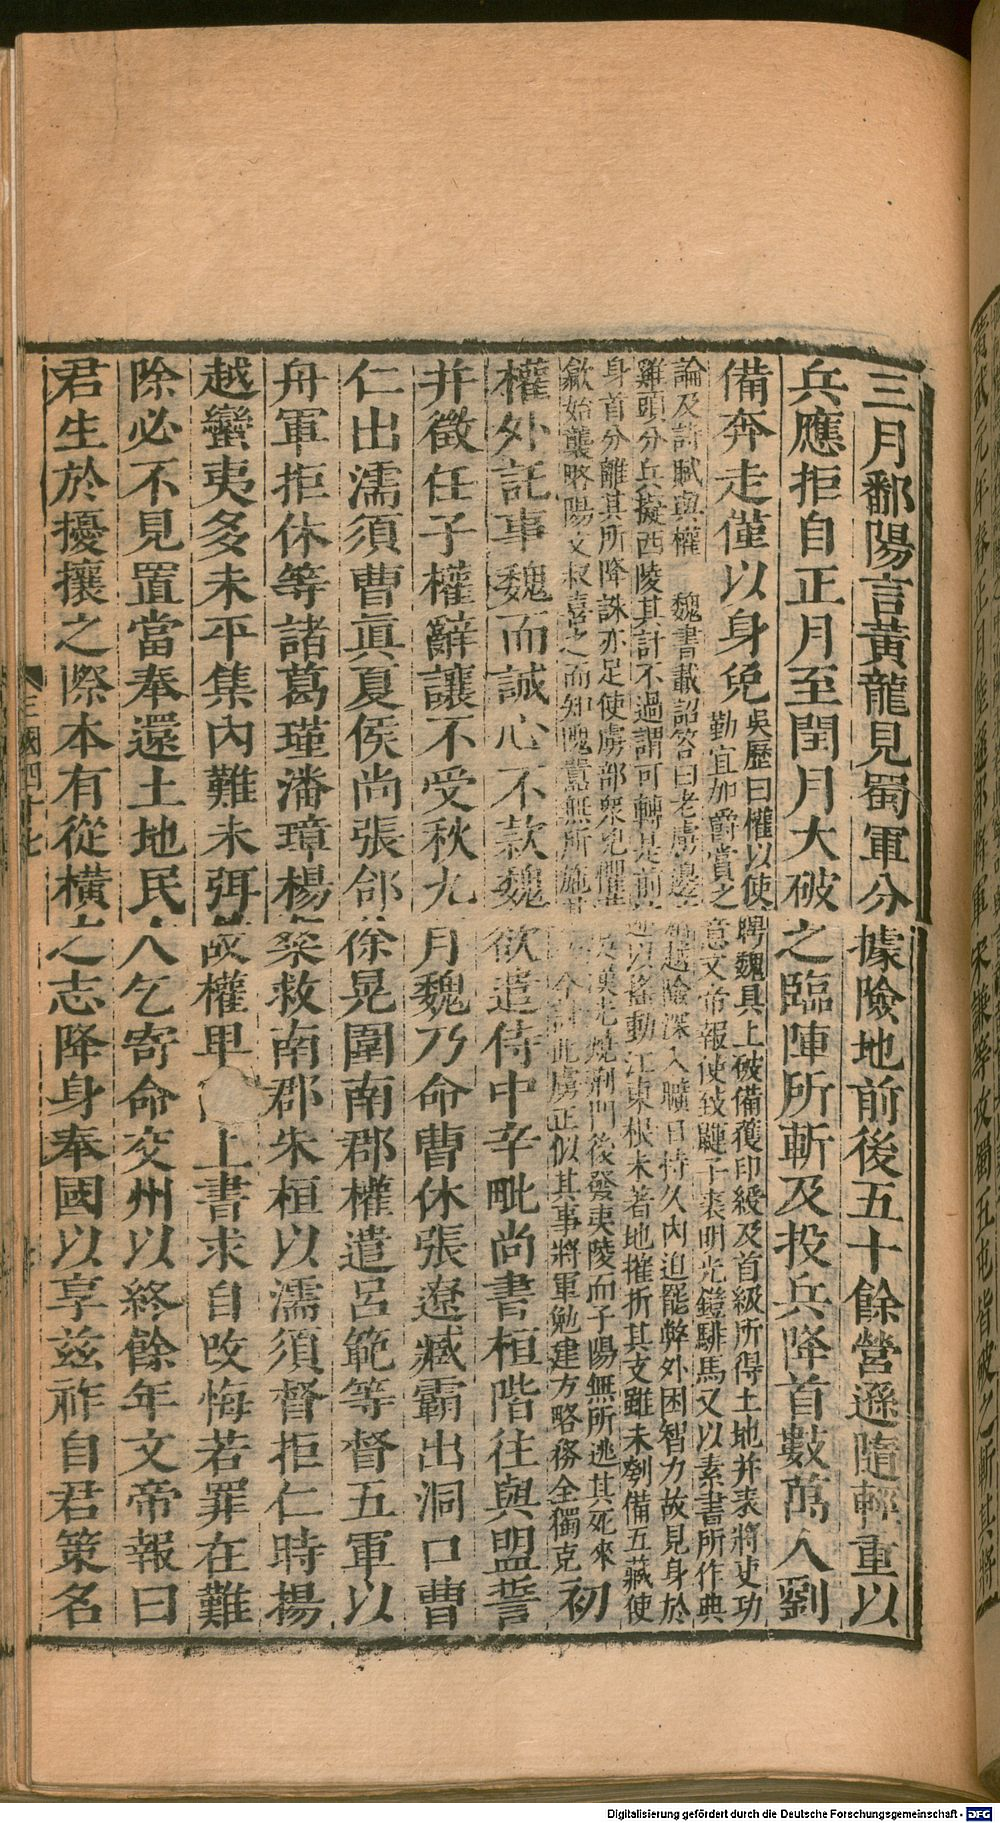 黃武元年春正月陸遜部將軍宋謙等攻蜀五屯皆破之斬其將
三月鄱陽言黃龍見蜀軍分據險地前後五十餘營遜隨輕重以
兵應拒自正月至閏月大破之臨陣所斬及投兵降首數萬人劉
備奔走僅以身免
吳歷曰權以使聘魏具上破備獲印綬及首級所得土地并表將吏功
勤宜加爵賞之意文帝報使致鼲子裘明光鎧騑馬又以素書所作典
論及詩賦與權 魏書載詔荅曰老虜邊越險深入曠日持久內迫罷弊外困智力故見身於
雞頭分兵擬西陵其計不過謂可轉足前迹以搖動江東根未著地摧折其支雖未刳備五臓使
身首分離其所降誅亦足使虜部衆兇懼漢先燒荊門後發夷陵而子陽無所逃其死來
歙始襲略陽文叔喜之而知隗囂無所施今討此虜正似其事將軍勉建方略務全獨克
初
權外託事魏而誠心不款魏欲遣侍中辛毗尚書桓階往與盟誓
并徵任子權辭讓不受秋九月魏乃命曹休張遼臧霸出洞口曹
仁出濡須曹眞夏侯尚張郃徐晃圍南郡權遣呂範等督五軍以
舟軍拒休等諸葛瑾潘璋楊粲救南郡朱桓以濡須督拒仁時揚
越蠻夷多未平集內難未弭故權卑上書求自改悔若罪在難
除必不見置當奉還土地民人乞寄命交州以終餘年文帝報曰
君生於擾攘之際本有從橫之志降身奉國以享茲祚自君策名
三國四十七
Digitalisierung gefördert durch die Deutsche Forschungsgemeinschaft - DFG